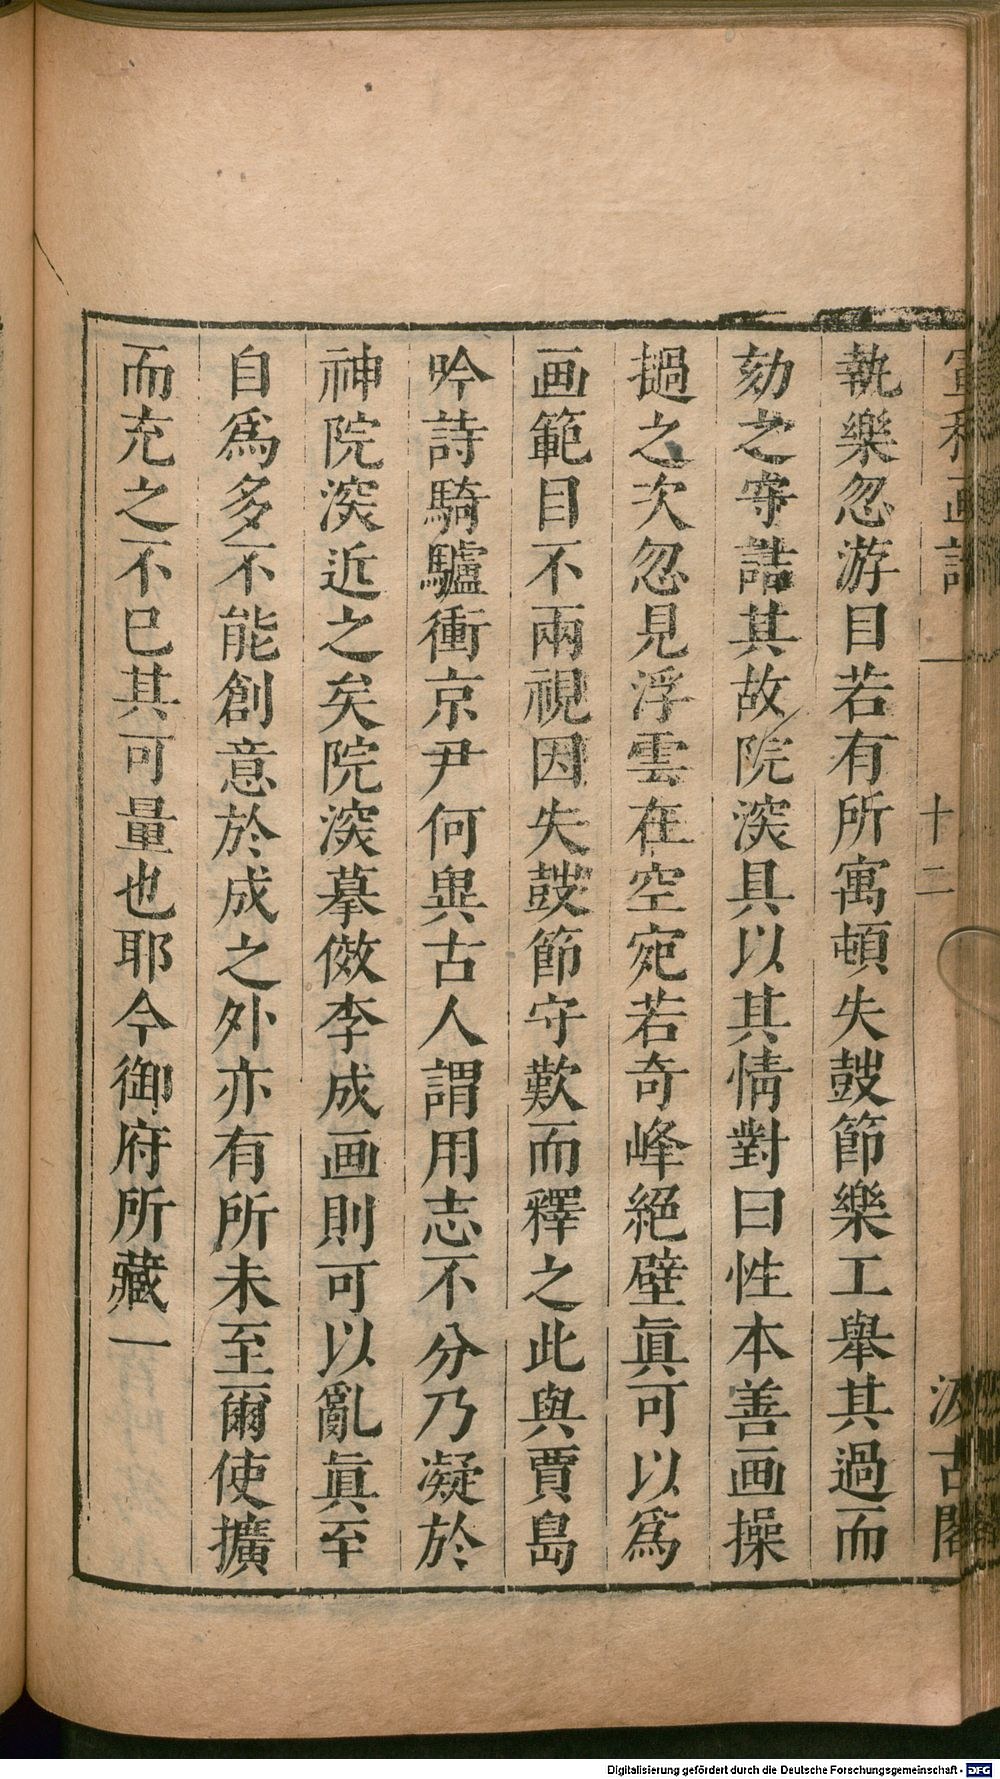 宣和画譜 十二 汲古閣
執樂忽游目若有所寓頓失鼓節樂工舉其過而
劾之守詰其故院深具以其情對曰性本善画操
撾之次忽見浮雲在空宛若奇峰絕壁眞可以爲
画範目不兩視因失鼓節守歎而釋之此與賈島
吟詩騎驢衝京尹何異古人謂用志不分乃凝於
神院深近之矣院深摹倣李成画則可以亂眞至
自爲多不能創意於成之外亦有所未至爾使擴
而充之不已其可量也耶今御府所藏一
Digitalisierung gefördert durch die Deutsche Forschungsgemeinschaft - DFG